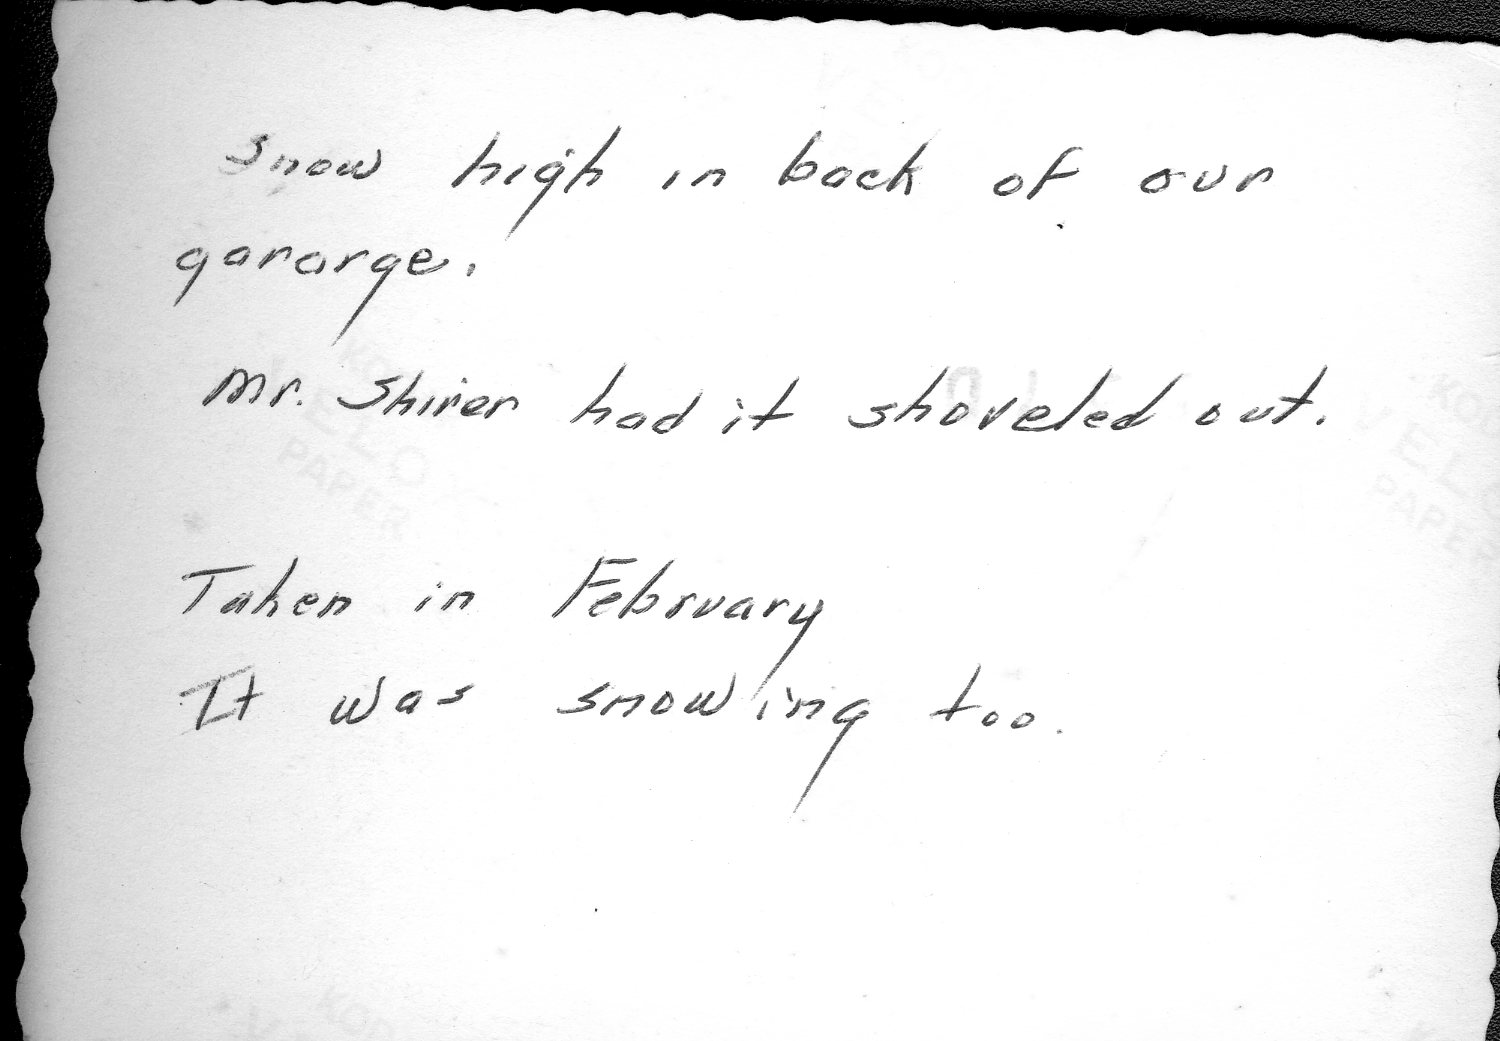 Snow high in back of our
gararge.
Mr. Shirer had it shoveled out.
Taken in February
It was snowing too.
KODAK
VELOX
PAPER